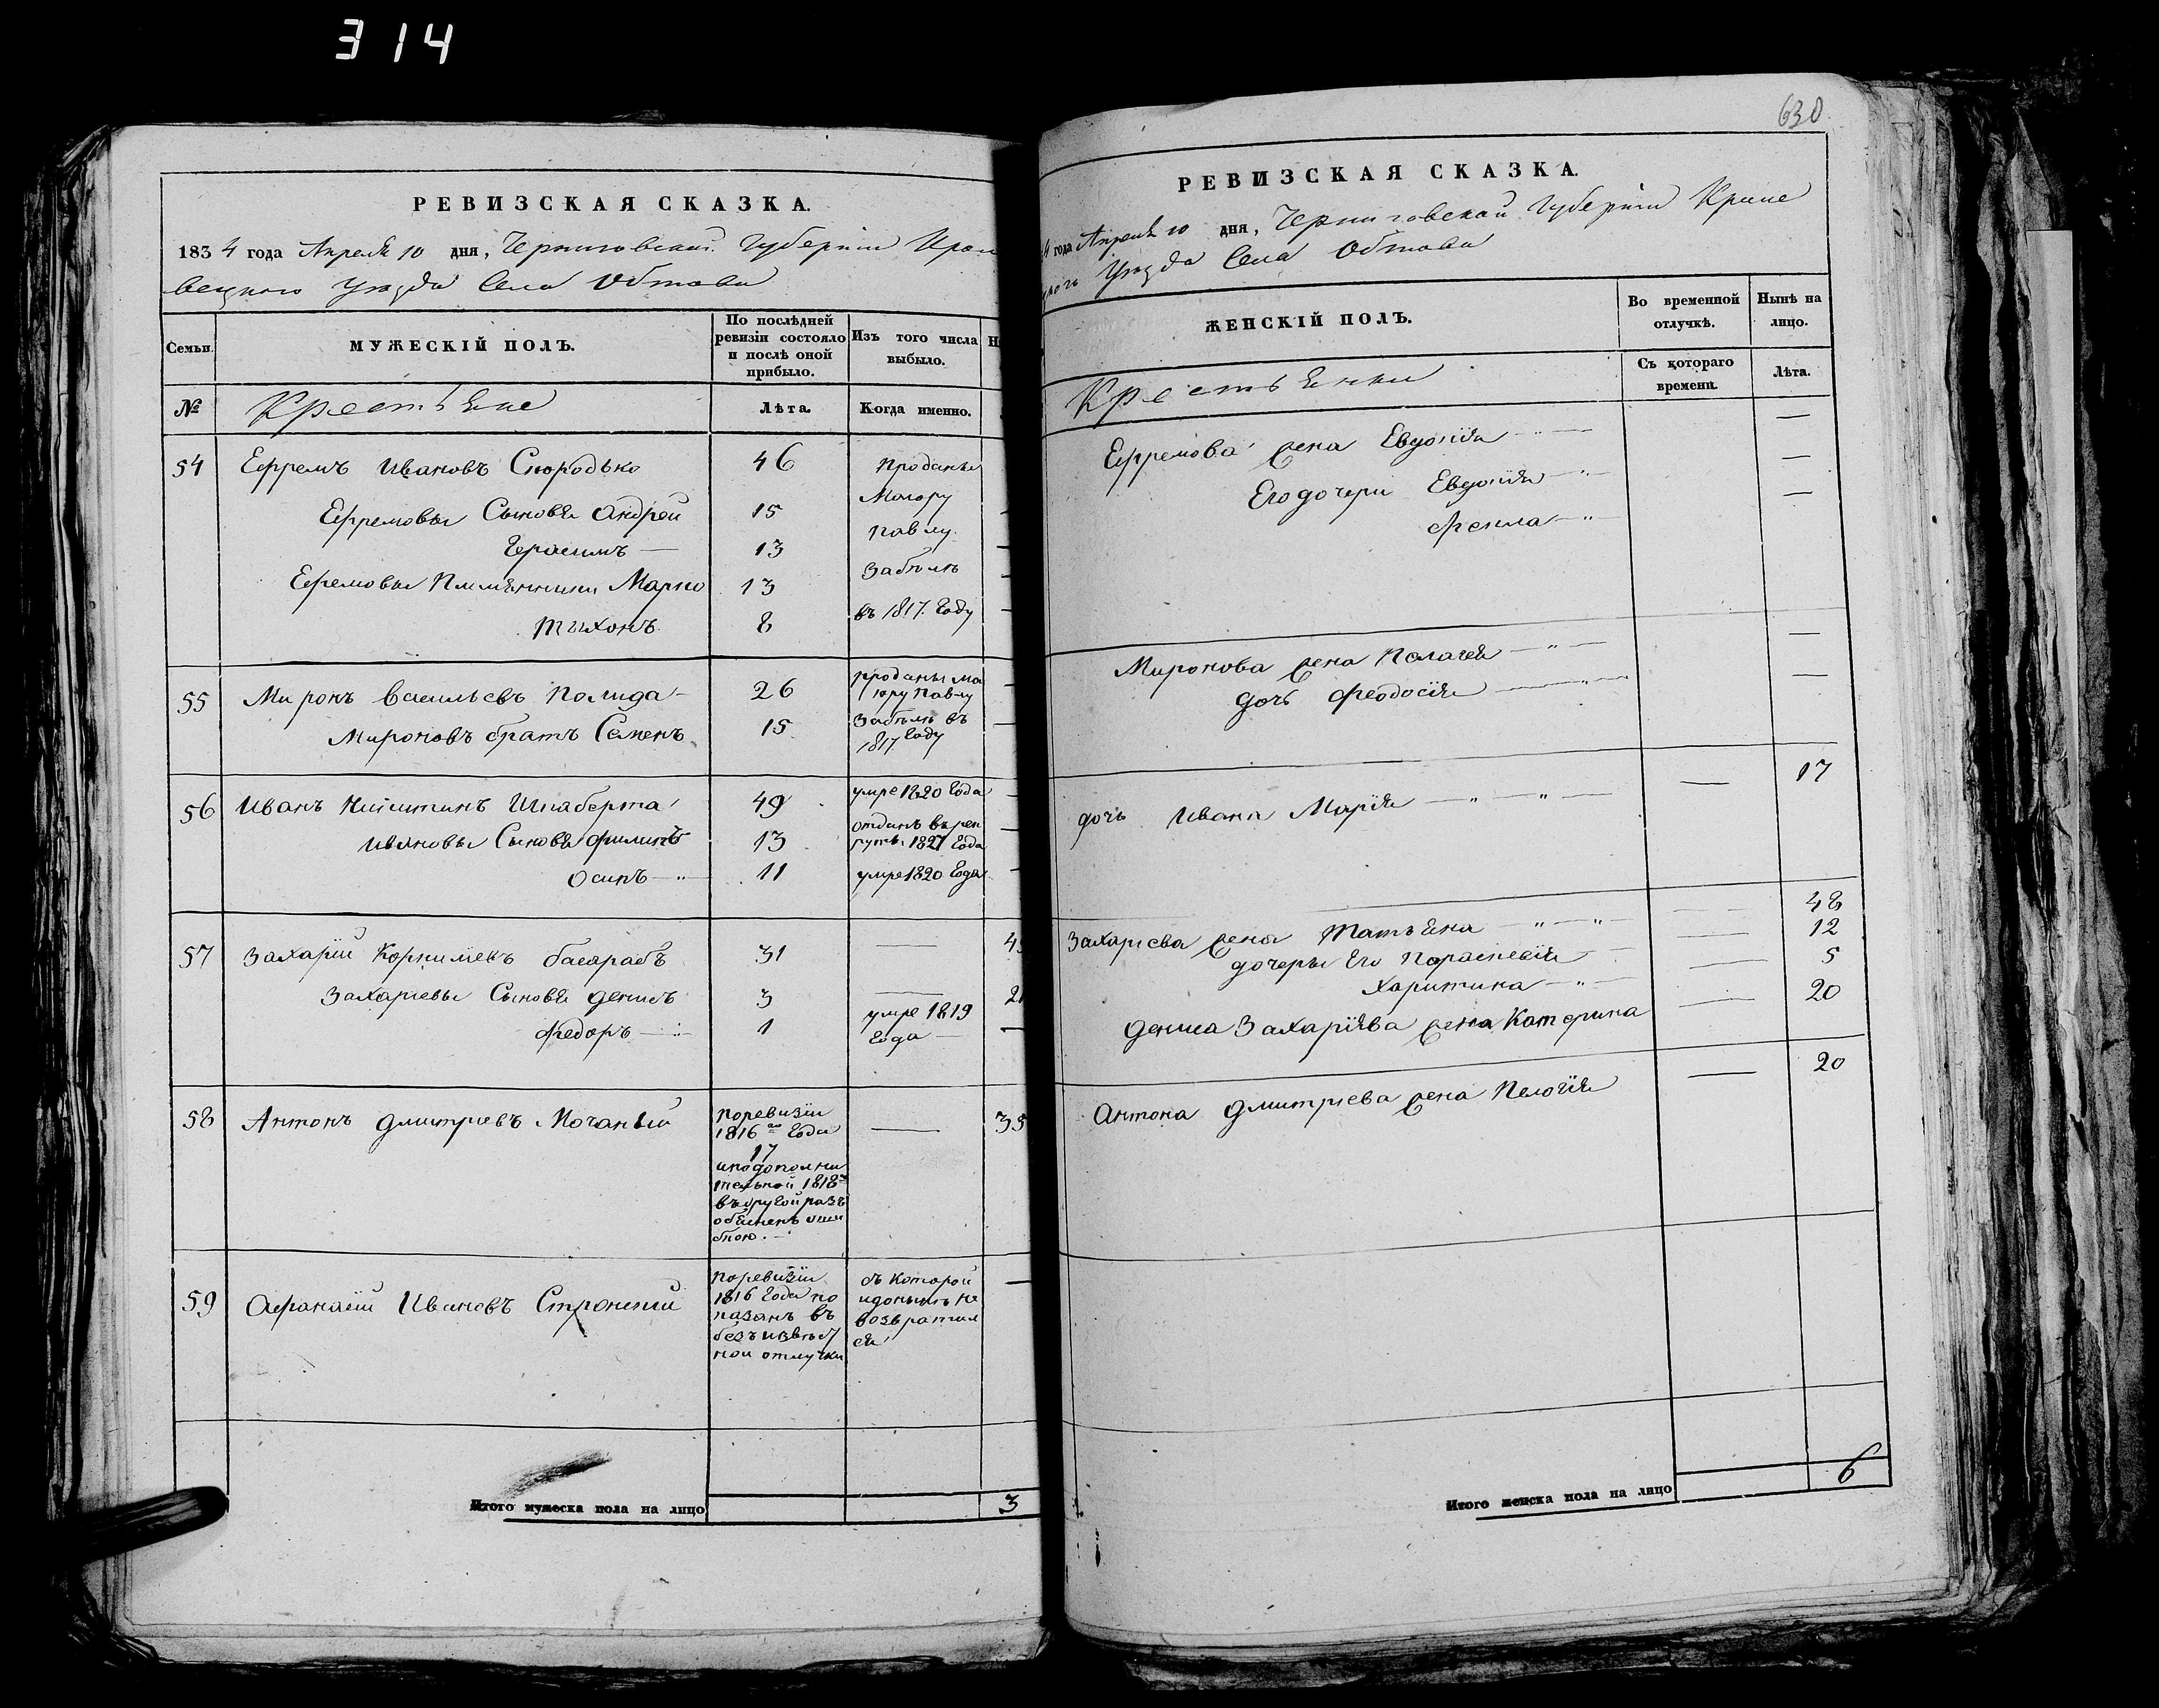 314
РЕВИЗСКАЯ СКАЗКА.
1834 года Апреля 10 дня, Черниговской Губернии Кроле
вецкого Уезда Села Обтова
Семьи.
МУЖЕСКІЙ ПОЛЪ.
По послѣдней ревизіи состояло и послѣ оной прибыло.
Изъ того числа выбыло.
№
Крестьяне
Лѣта.
Когда именно.
54 Ефремъ Ивановъ Скородько 46 проданы
Маіору
Ефремовы Сыновья Андрей 15 Павлу
Герасимъ 13 Забѣлѣ
Ефремовы Племянники Марко 13
въ 1817. Году
Тихонъ 8
55 Миронъ Васильевъ 26 проданы Ма
іору Павлу
Мироновъ братъ Семенъ 15 Забѣлѣ въ
1817 Году
56 Иванъ Никитинъ 49 умре 1820 Года
Ивановы Сыновья Филипъ 13 отданъ в рек
руты 1827 Года
Осипъ 11 умре 1820 Года
57 Захарій Корнилиевъ Басарабъ 31 —
Захариевы Сыновья Денисъ 3 —
Федоръ 1 умре 1819
Года
58 Антонъ Дмитриевъ Мочаный — 35
поревизіи
1816го Года
17
иподополни
тельной 1818
въ другой разъ
ошибкою.
59 Афанасій Ивановъ —
поревизіи
1816 Года по
казанъ въ
безъизвѣст
ной отлучки
съ которой
идоныне не
возвратил
ся
Итого мужеска пола на лицо 3
630
РЕВИЗСКАЯ СКАЗКА.
4 года Апреля 10 дня, Черниговской Губерніи Кроле
Уезда Села Обтова
ЖЕНСКІЙ ПОЛЪ.
Во временной отлучкѣ.
Нынѣ на лицо.
Крестьянки
Съ котораго времени.
Лѣта.
Ефремова жена Евдокія —
Его дочери Евдокія —
Фекла —
Миронова жена Пелагея —
дочь Феодосія —
дочь Ивана Марія — 17
Захариева жена Татьяна — 48
дочеры Его Параскевія — 12
Харитина — 5
Дениса Захаріява жена Катерина — 20
Антона Дмитриева жена Пелогія — 20
Итого женска пола на лицо 6